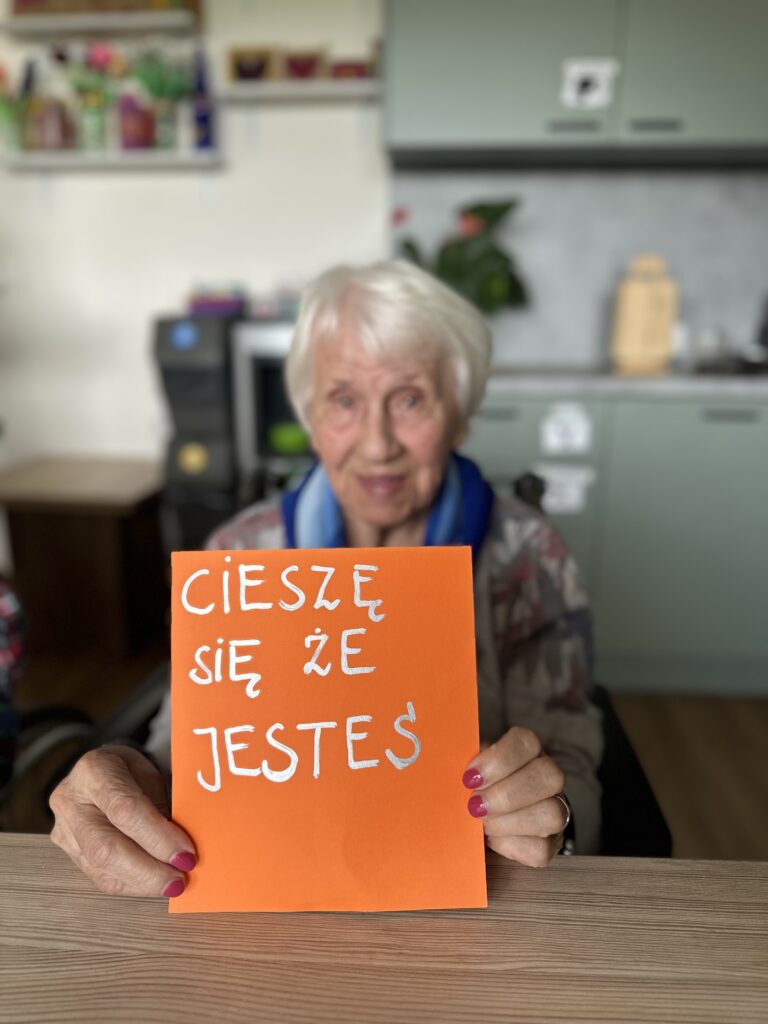 CIESZĘ
SIĘ ŻE
JESTEŚ